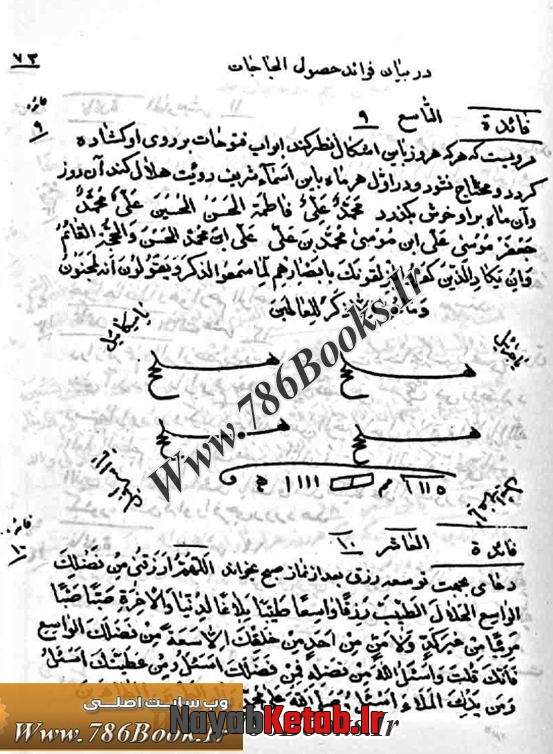 در بیان فوائد حصول الحاجات
۷۳
فائدة التاسع ۹
فائدة ۹
مرویست که هر که هر روز باین اشکال نظر کند ابواب فتوحات بر روی او گشاده
گردد و محتاج نشود و در اول هر ماه باین اسماء شریف رویت هلال کند آن روز
و آن ماه بر او خوش بگذرد محمد علی فاطمة الحسن الحسین علی محمد
جعفر موسی علی ابن موسی محمد بن علی علی ابن محمد الحسن والحجة القائم
وان یکاد الذین لیزلقونک بابصارهم لما سمعوا الذکر ویقولون انه لمجنون
ذکر للعالمین
یا میکائیل
فائدة العاشر ۱۰
دعای مجهت توسعه رزق بعد از نماز صبح بخواند اللهم ارزقنی من فضلک
الواسع الحلال الطیب رزقا واسعا طیبا بلاغا للدنیا والاخرة صبا صبا
من غیر کد ولا من من احد من خلقک الا سعة من فضلک الواسع
فانک قلت واسئلوا الله من فضله فمن فضلک اسئل ومن عطیتک اسئل
ومن یدک الملاء اسئل
Www.786Books.Ir
وب سایت اصلی
Www.786Book.Ir
NayabKetab.Ir